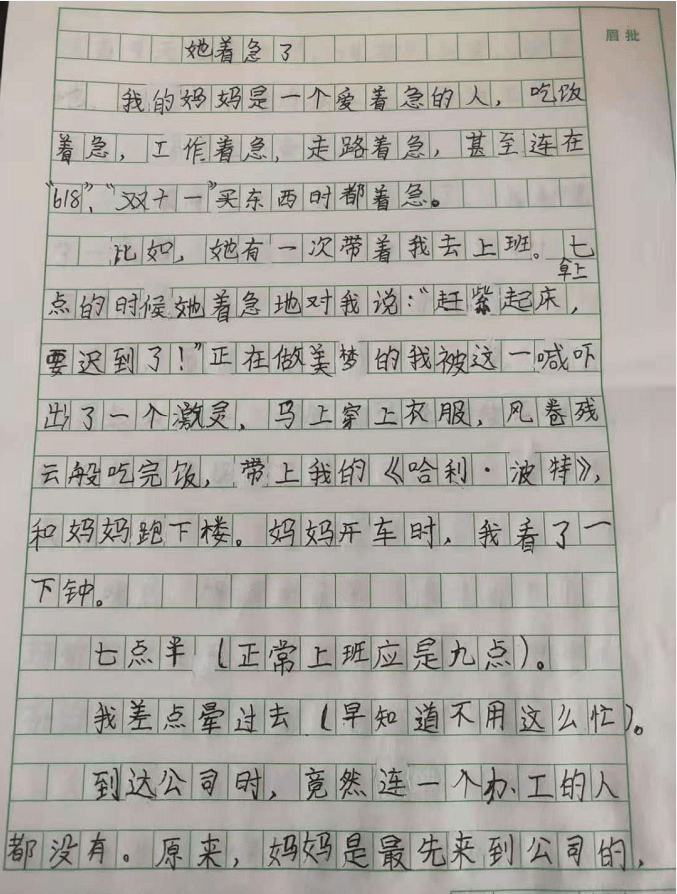 眉批
她着急了
我的妈妈是一个爱着急的人，吃饭
着急，工作着急，走路着急，甚至连在
“618”、“双十一”买东西时都着急。
比如，她有一次带着我去上班。七
早上
点的时候她着急地对我说：“赶紧起床，
要迟到了！”正在做美梦的我被这一喊吓
出了一个激灵，马上穿上衣服，风卷残
云般吃完饭，带上我的《哈利·波特》，
和妈妈跑下楼。妈妈开车时，我看了一
下钟。
七点半（正常上班应是九点）。
我差点晕过去（早知道不用这么忙）。
到达公司时，竟然连一个办工的人
都没有。原来，妈妈是最先来到公司的，